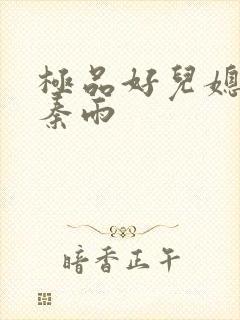 極品好兒媳
秦雨
暗香正午